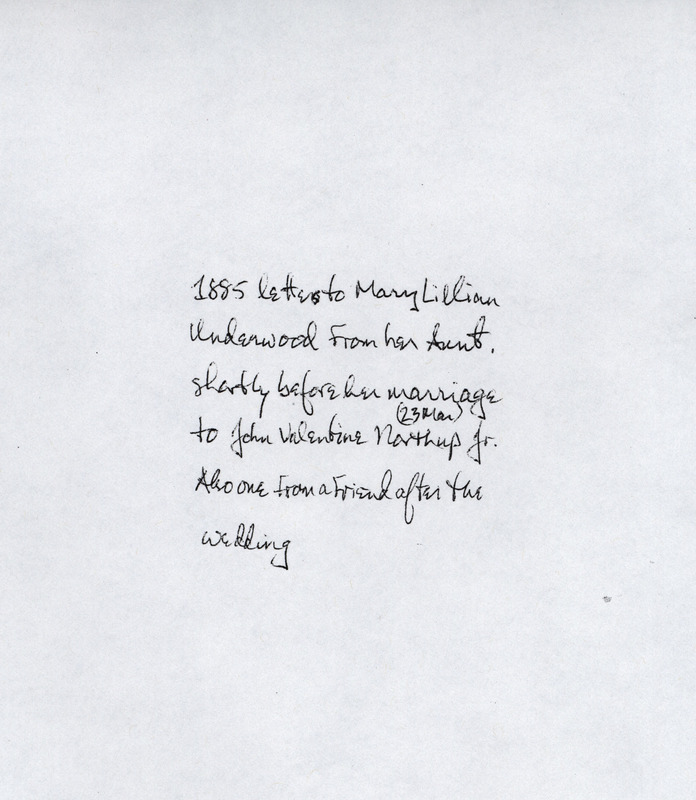 1885 letters to Mary Lillian
Underwood From her Aunt.
shortly before her marriage
(23 Mar)
to John Valentine Northup Jr.
Also one From a Friend after the
wedding